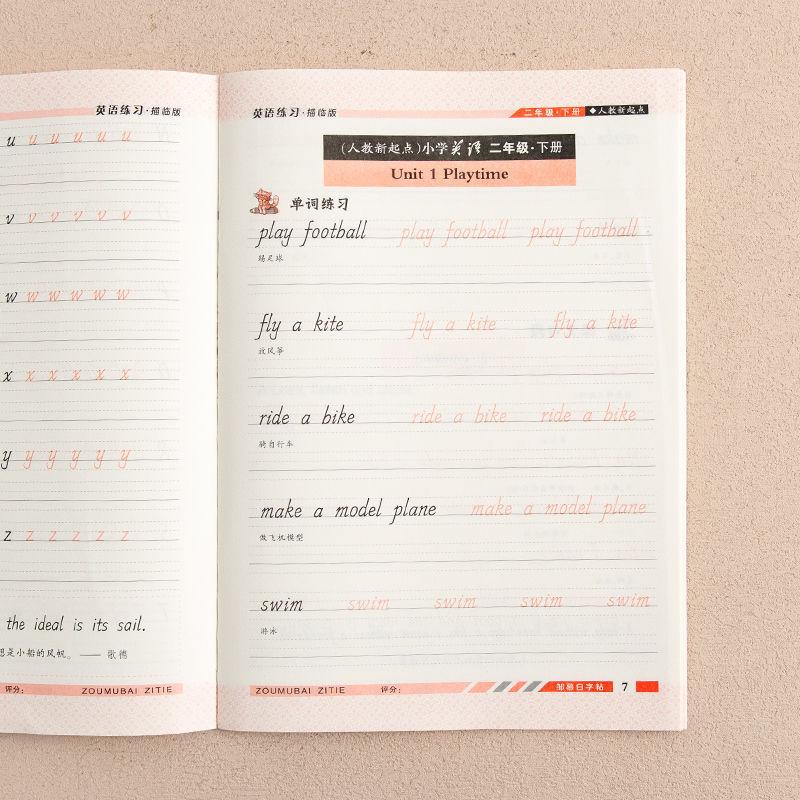 英语练习·描临版
u u u u u u
v v v v v v
w w w w w w
x x x x x x
y y y y y y
z z z z z z
the ideal is its sail.
想是小船的风帆。 —— 歌德
评分: ZOUMUBAI ZITIE
英语练习·描临版 二年级·下册 ◆人教新起点
(人教新起点)小学英语 二年级·下册
Unit 1 Playtime
单词练习
play football play football play football
踢足球
fly a kite fly a kite fly a kite
放风筝
ride a bike ride a bike ride a bike
骑自行车
make a model plane make a model plane
做飞机模型
swim swim swim swim swim
游泳
ZOUMUBAI ZITIE 评分: 邹慕白字帖 7